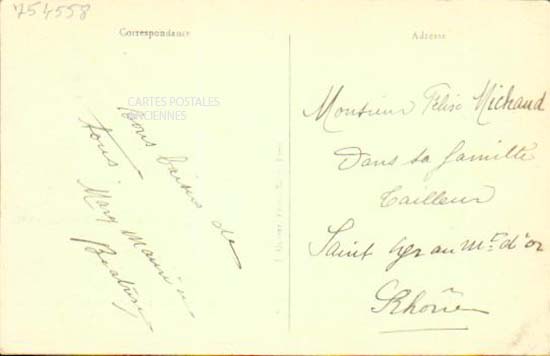 754558
Correspondance
Adresse
CARTES POSTALES
ANCIENNES
Bons baisers de
tous
Mary Mauri
Monsieur Félix Michaud
Dans sa famille
Tailleur
Saint Cyr au Mt d'or
Rhône